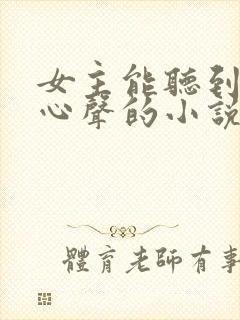 女主能聽到
心聲的小說
體育老師有事